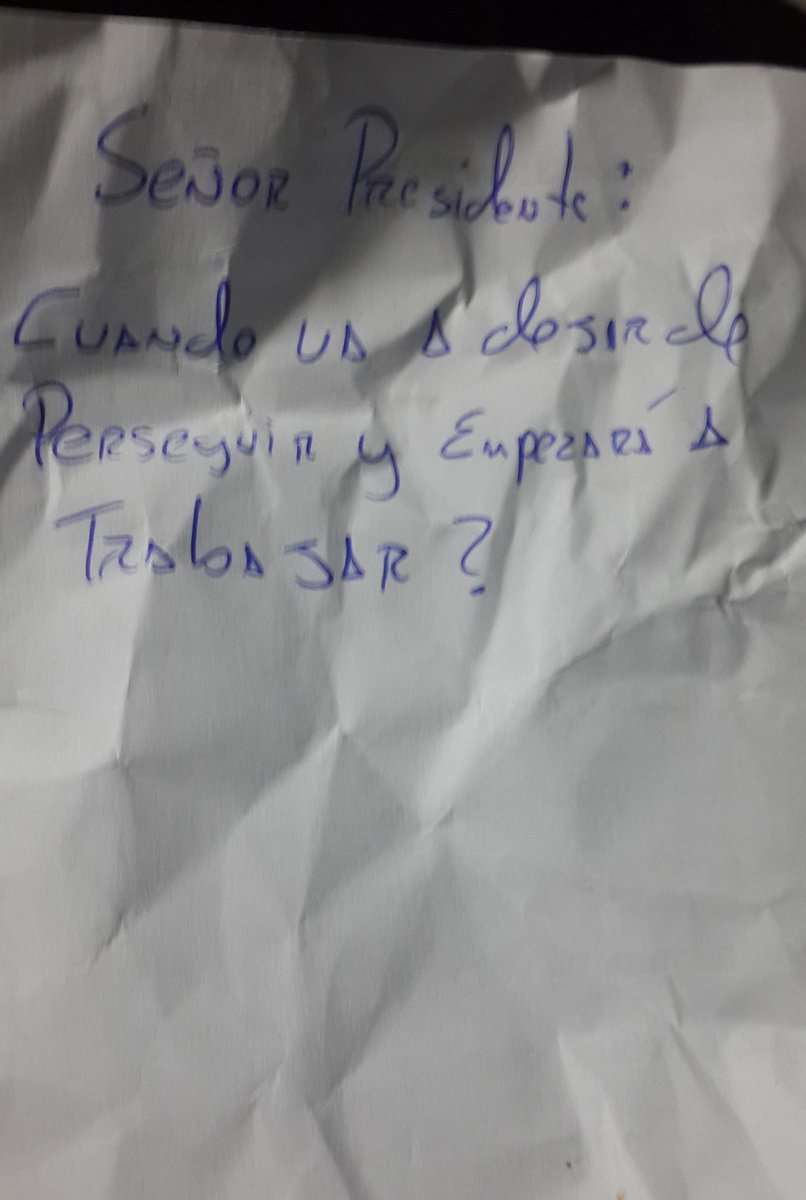 Señor Presidente:
Cuando va a desir de
Perseguir y Empezará a
Trabajar?